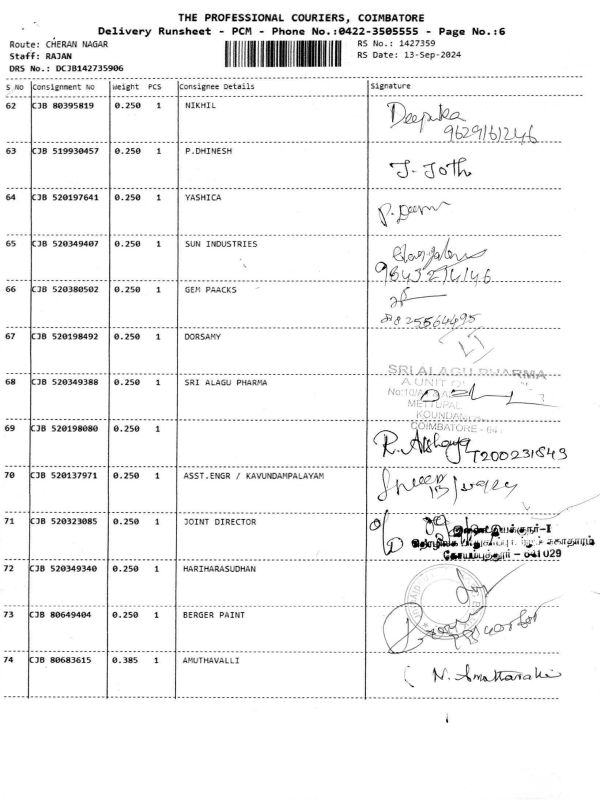 THE PROFESSIONAL COURIERS, COIMBATORE
Delivery Runsheet - PCM - Phone No.:0422-3505555 - Page No.:6
Route: CHERAN NAGAR RS No.: 1427359
Staff: RAJAN RS Date: 13-Sep-2024
DRS No.: DCJB142735906
S No Consignment No Weight PCS Consignee Details Signature
62 CJB 80395819 0.250 1 NIKHIL Deepika
9629161246
63 CJB 519930457 0.250 1 P.DHINESH J. Joth
64 CJB 520197641 0.250 1 YASHICA
65 CJB 520349407 0.250 1 SUN INDUSTRIES
66 CJB 520380502 0.250 1 GEM PAACKS
67 CJB 520198492 0.250 1 DORSAMY
SRI ALAGU PHARMA
68 CJB 520349388 0.250 1 SRI ALAGU PHARMA A UNIT
METTUPAL
KOUNDAM
COIMBATORE - 641
69 CJB 520198080 0.250 1 R. Akshaya
T200231549
70 CJB 520137971 0.250 1 ASST.ENGR / KAVUNDAMPALAYAM
71 CJB 520323085 0.250 1 JOINT DIRECTOR இணை இயக்குநர்-I
கோயம்புத்தூர் - 641029
72 CJB 520349340 0.250 1 HARIHARASUDHAN
73 CJB 80649404 0.250 1 BERGER PAINT
74 CJB 80683615 0.385 1 AMUTHAVALLI